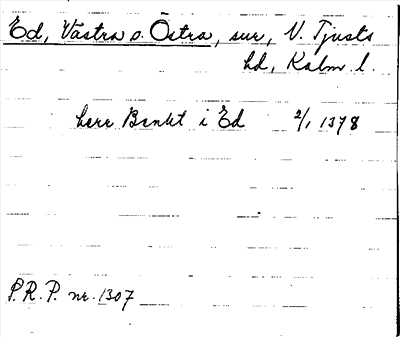 Ed, Västra o. Östra, sur, V. Tjusts
hd, Kalm l.
herr Benkt i Ed 2/1 1378
P.R.P. nr. 1307